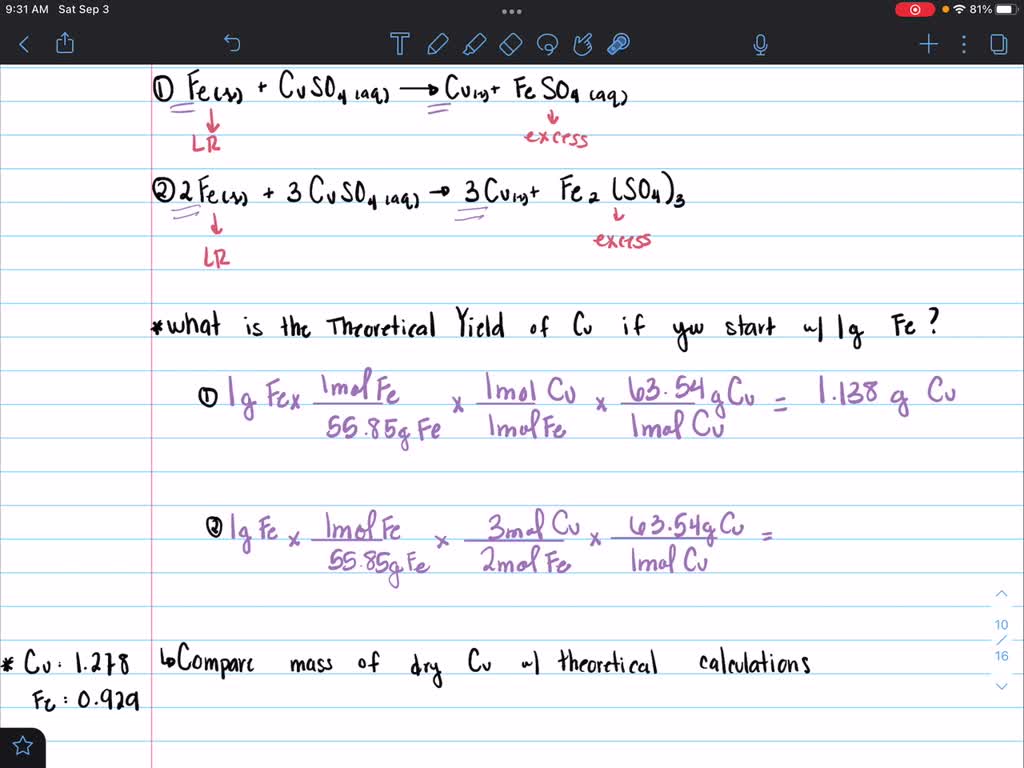 9:31 AM Sat Sep 3
81%
① Fe(s) + CuSO4 (aq) → Cu(s) + FeSO4 (aq)
LR
excess
② 2Fe(s) + 3CuSO4 (aq) → 3Cu(s) + Fe2 (SO4)3
LR
excess
*what is the Theoretical Yield of Cu if you start w/ 1g Fe?
① 1g Fe x 1mol Fe / 55.85g Fe x 1mol Cu / 1mol Fe x 63.54 g Cu / 1mol Cu = 1.138 g Cu
② 1g Fe x 1mol Fe / 55.85g Fe x 3mol Cu / 2mol Fe x 63.54g Cu / 1mol Cu =
10
/
16
* Cu: 1.278 ↳Compare mass of dry Cu w/ theoretical calculations
Fe: 0.929